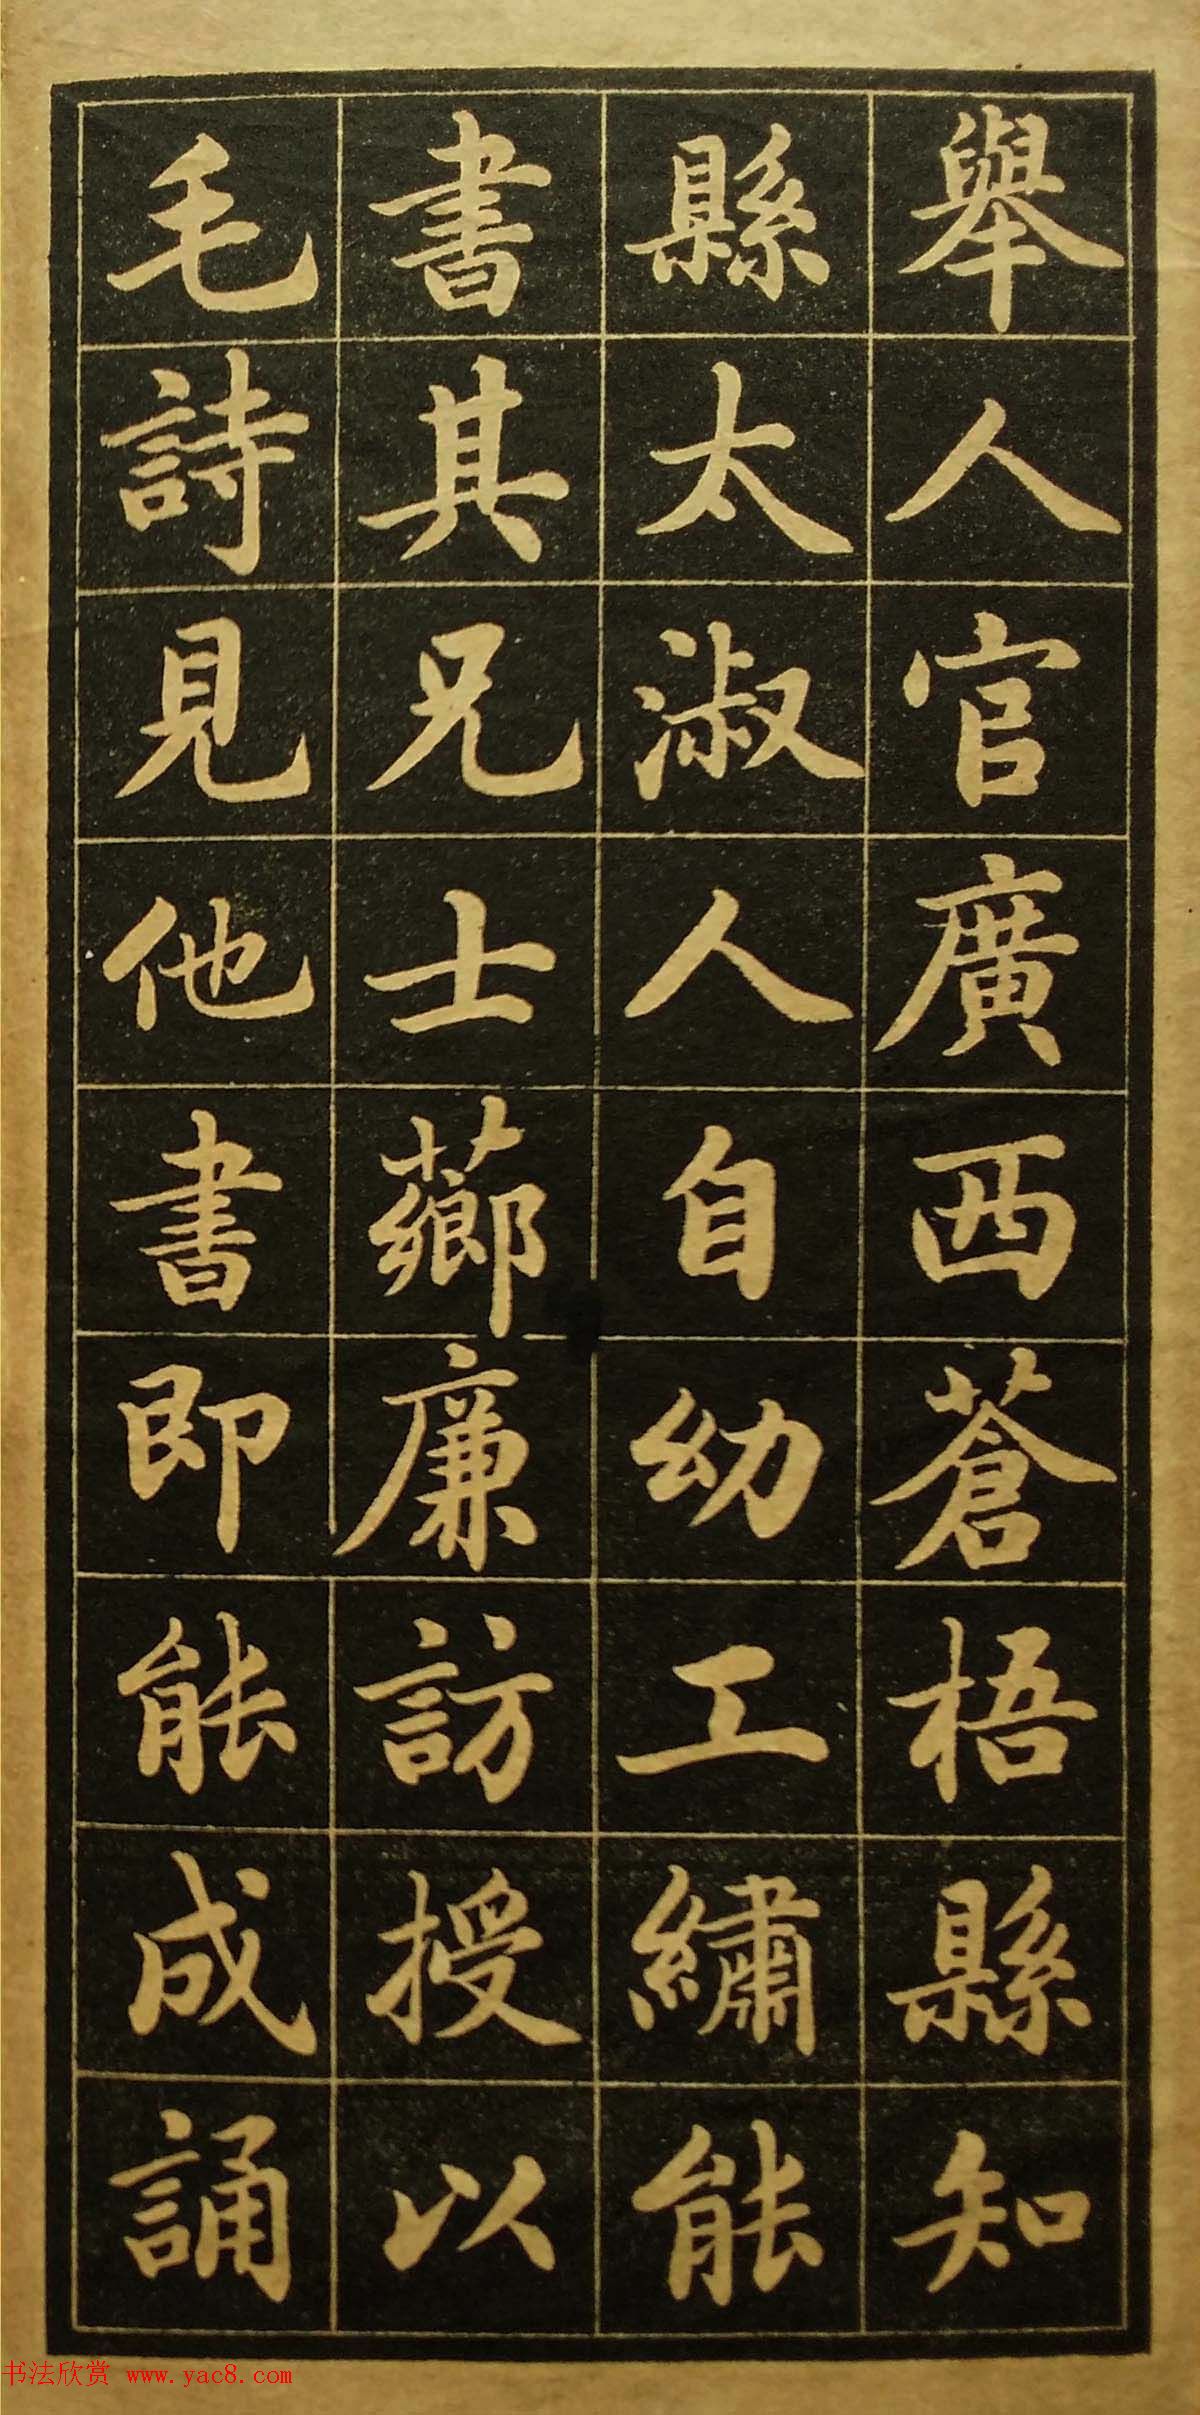 舉人官廣西蒼梧縣知
縣太淑人自幼工繡能
書其兄士薌廉訪授以
毛詩見他書即能成誦
书法欣赏 www.yac8.com